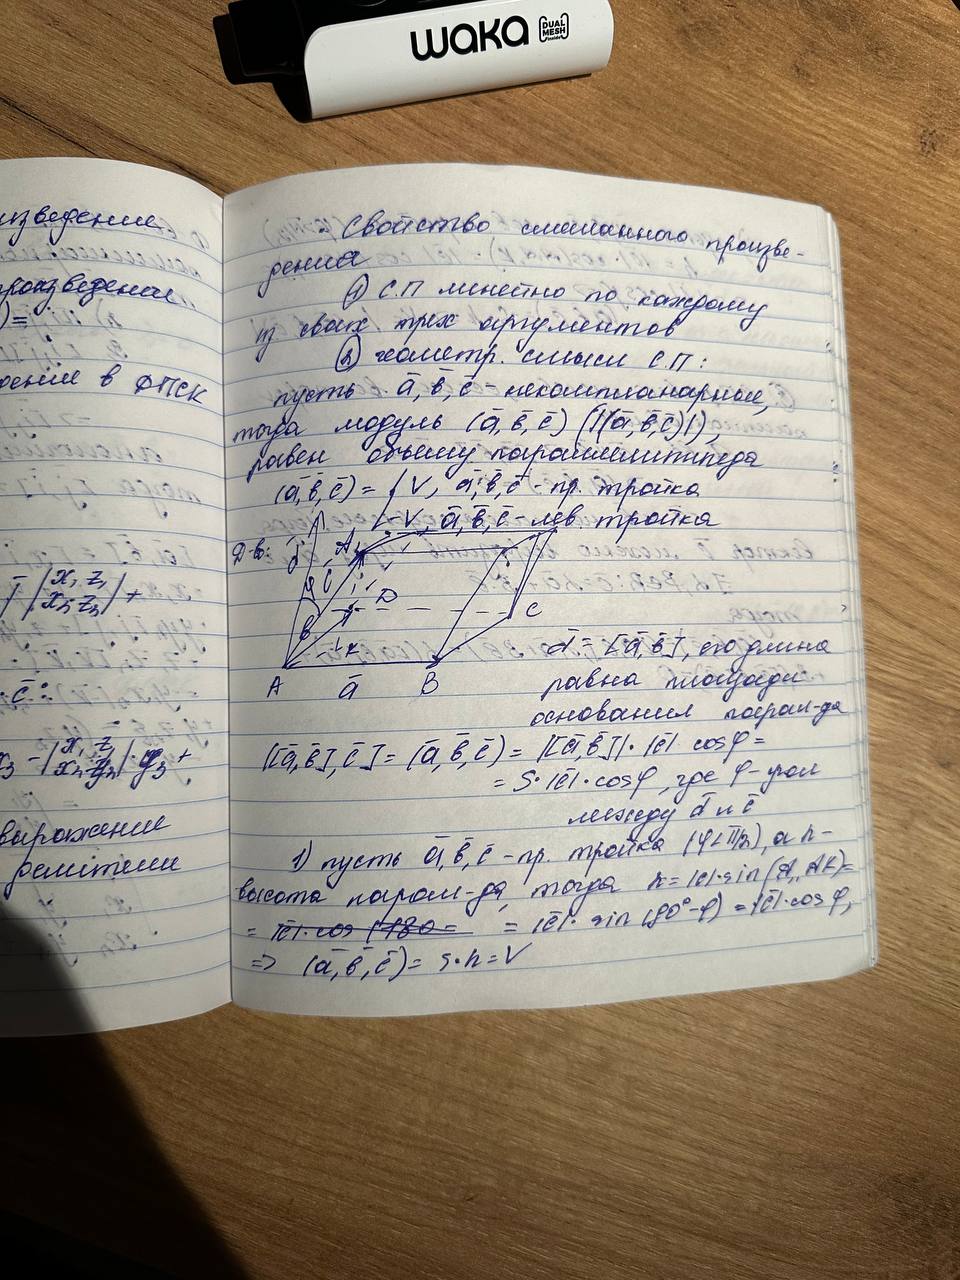 WAKA
DUAL
MESH
изведение
произведении
)=
дение в ФПСК
c̄:
выражение
Свойство смешанного произве-
дения
① С.П линейно по каждому
из своих трех аргументов
② геометр. смысл С.П:
пусть ā, b̄, c̄ - некомпланарные,
тогда модуль (ā, b̄, c̄) (|(ā, b̄, c̄)|),
равен объему параллелипипеда
(ā, b̄, c̄) = { V, ā, b̄, c̄ - пр. тройка
-V, ā, b̄, c̄ - лев тройка
Д-в:
d̄
A₁
φ
c̄
D
C
b̄
K
A ā B
d̄ = [ā, b̄], его длина
равна площади
основания парал-да
[[ā, b̄], c̄] = (ā, b̄, c̄) = |[ā, b̄]| · |c̄| · cosφ =
= S · |c̄| · cosφ, где φ - угол
между d̄ и c̄
1) пусть ā, b̄, c̄ - пр. тройка (φ < π/2), а h -
высота парал-да, тогда h = |c̄| · sin (A₁AK) =
= |c̄| · cos (180 = = |c̄| · sin (90° - φ) = |c̄| · cos φ,
=> (ā, b̄, c̄) = S · h = V